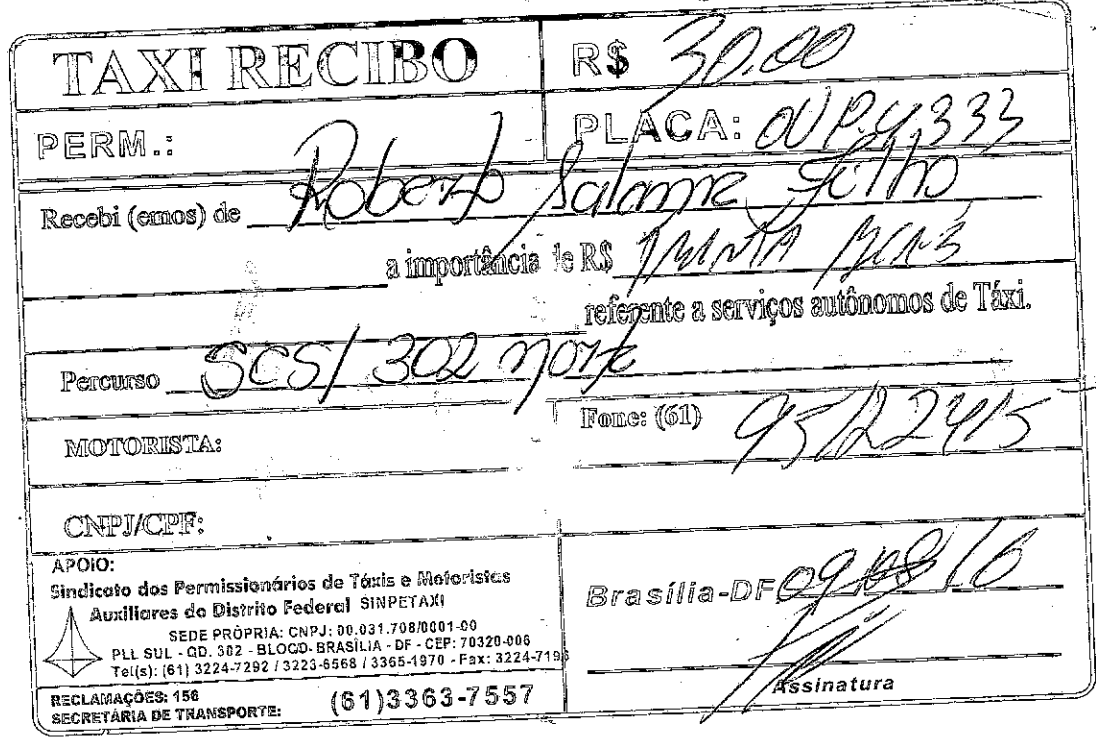 TAXI RECIBO
R$ 30.00
PERM.:
PLACA: OVP.4333
Recebi (emos) de Roberto Salame Filho
a importância de R$ TRINTA REAIS
referente a serviços autônomos de Táxi.
Percurso SCS/ 302 norte
MOTORISTA:
Fone: (61) 95122415
CNPJ/CPF:
APOIO:
Sindicato dos Permissionários de Táxis e Motoristas
Auxiliares do Distrito Federal SINPETAXI
SEDE PRÓPRIA: CNPJ: 00.031.708/0001-00
PLL SUL - QD. 302 - BLOCO - BRASÍLIA - DF - CEP: 70320-006
Tel(s): (61) 3224-7292 / 3223-6568 / 3365-1970 - Fax: 3224-7193
RECLAMAÇÕES: 156
SECRETÁRIA DE TRANSPORTE: (61)3363-7557
Brasília-DF 09/08/16
Assinatura